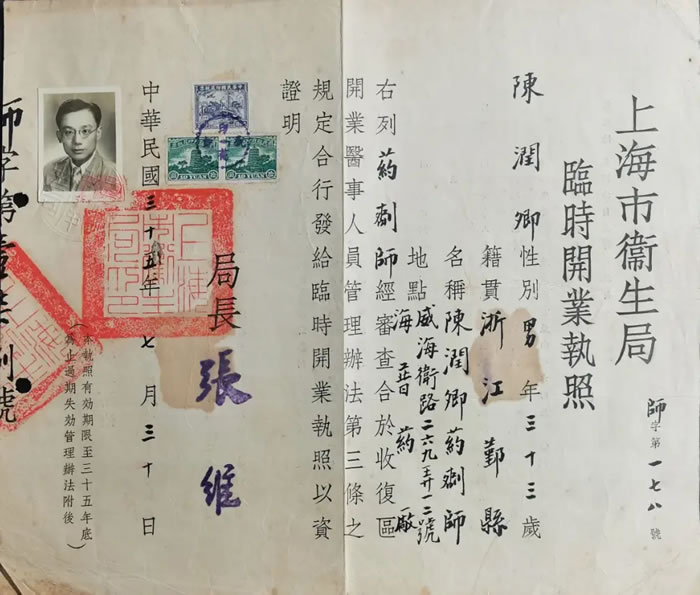 上海市衞生局
臨時開業執照
師字第一七八號
陳潤卿性別男年三十三歲
籍貫浙江鄞縣
名稱陳潤卿葯劑師
地點威海衛路二六九弄一二號
海普葯廠
右列葯劑師經審查合於收復區
開業醫事人員管理辦法第三條之
規定合行發給臨時開業執照以資
證明
局長張維
中華民國三十五年七月三十日
（本執照有効期限至三十五年底
為止過期失効管理辦法附後）